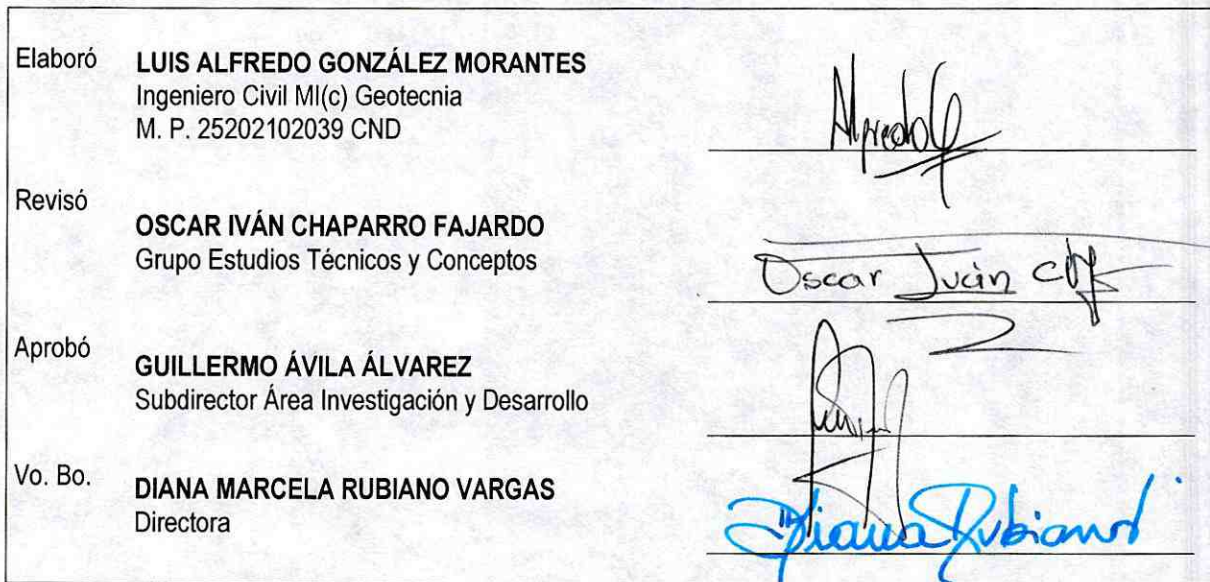 Elaboró
LUIS ALFREDO GONZÁLEZ MORANTES
Ingeniero Civil MI(c) Geotecnia
M. P. 25202102039 CND
Revisó
OSCAR IVÁN CHAPARRO FAJARDO
Grupo Estudios Técnicos y Conceptos
Oscar Iván
Aprobó
GUILLERMO ÁVILA ÁLVAREZ
Subdirector Área Investigación y Desarrollo
Vo. Bo.
DIANA MARCELA RUBIANO VARGAS
Directora
Diana Rubiano